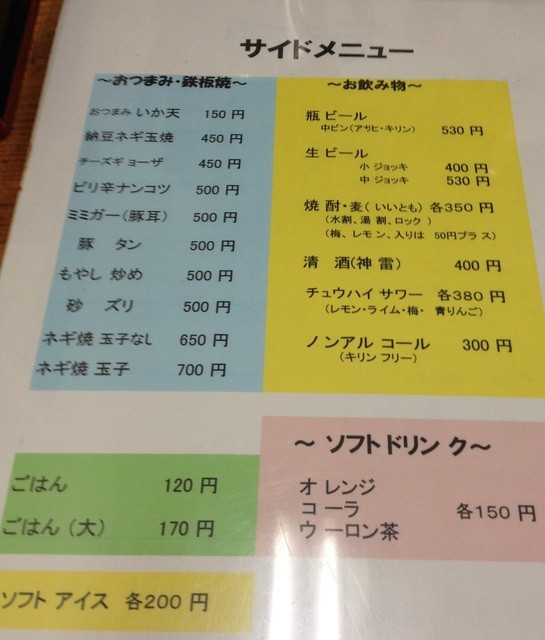 サイドメニュー
～おつまみ・鉄板焼～
おつまみ いか天 150 円
納豆ネギ玉焼 450 円
チーズギョーザ 450 円
ピリ辛ナンコツ 500 円
ミミガー（豚耳） 500 円
豚 タン 500 円
もやし 炒め 500 円
砂 ズリ 500 円
ネギ焼 玉子なし 650 円
ネギ焼 玉子 700 円
～お飲み物～
瓶 ビール
中ビン（アサヒ・キリン） 530 円
生 ビール
小 ジョッキ 400 円
中 ジョッキ 530 円
焼 酎・麦（ いいとも） 各350 円
（水割、湯 割、ロック ）
（梅、レモン、入りは 50円プラス）
清 酒（神 雷） 400 円
チュウハイ サワー 各380 円
（レモン・ライム・梅・ 青りんご）
ノンアル コール 300 円
（キリン フリー）
ごはん 120 円
ごはん （大） 170 円
ソフト アイス 各200 円
～ ソフトドリンク～
オレンジ
コーラ 各150 円
ウーロン茶